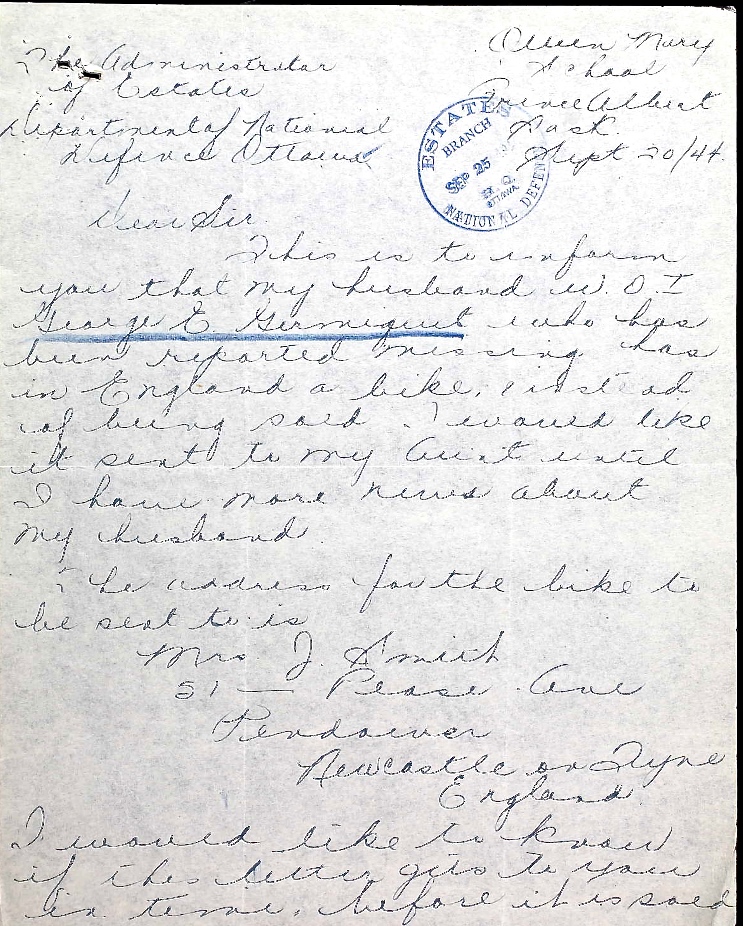 Queen Mary
School
The Administrator
of Estates
Prince Albert
Sask.
Department of National
Defence Ottawa
Sept 20/44.
ESTATES
BRANCH
SEP 25
OTTAWA
NATIONAL DEFENCE
Dear Sir
This is to inform
you that my husband W.O.I
George E. Germiquet who has
been reported missing has
in England a bike, instead
of being sold. I would like
it sent to my Aunt until
I have more news about
my husband.
The address for the bike to
be sent to is
Mrs J. Smith
51 — Pease Ave
Pendower
Newcastle on Tyne
England.
I would like to know
if this letter gets to you
in time, before it is sold